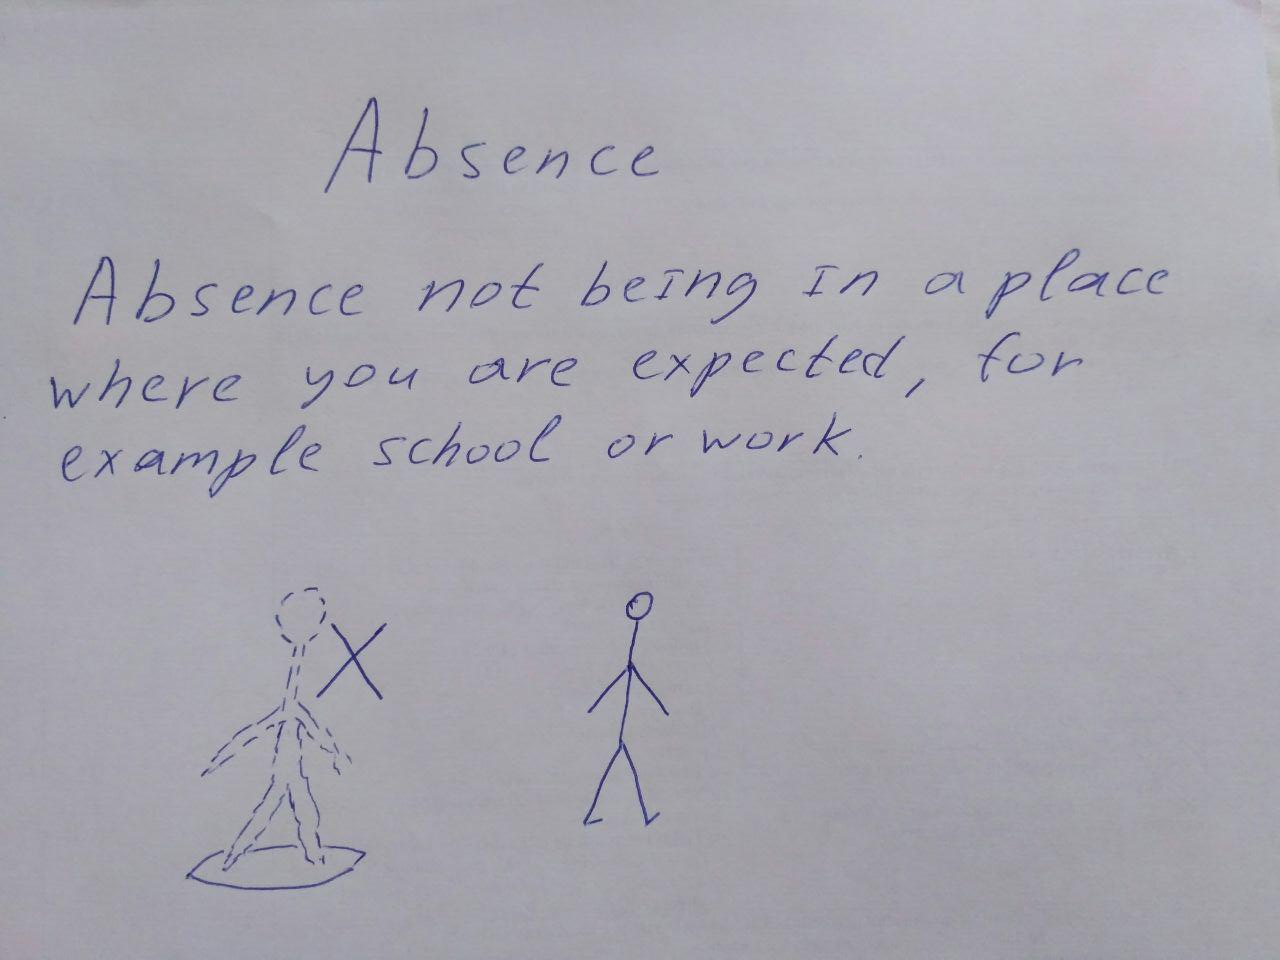 Absence
Absence not being in a place
where you are expected, for
example school or work.